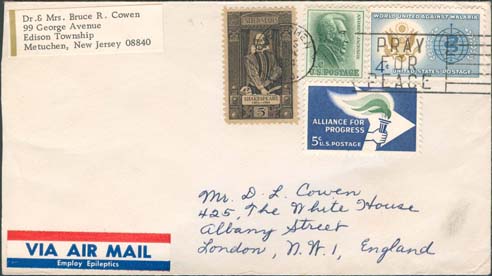 Dr. & Mrs. Bruce R. Cowen
99 George Avenue
Edison Township
Metuchen, New Jersey 08840
SHAKESPEARE
5
U.S. POSTAGE
WORLD UNITED AGAINST MALARIA
UNITED STATES POSTAGE
PRAY
FOR
PEACE
ALLIANCE FOR
PROGRESS
5¢ U.S. POSTAGE
Mr. D. L. Cowen
425, The White House
Albany Street
London, N.W.1, England
VIA AIR MAIL
Employ Epileptics